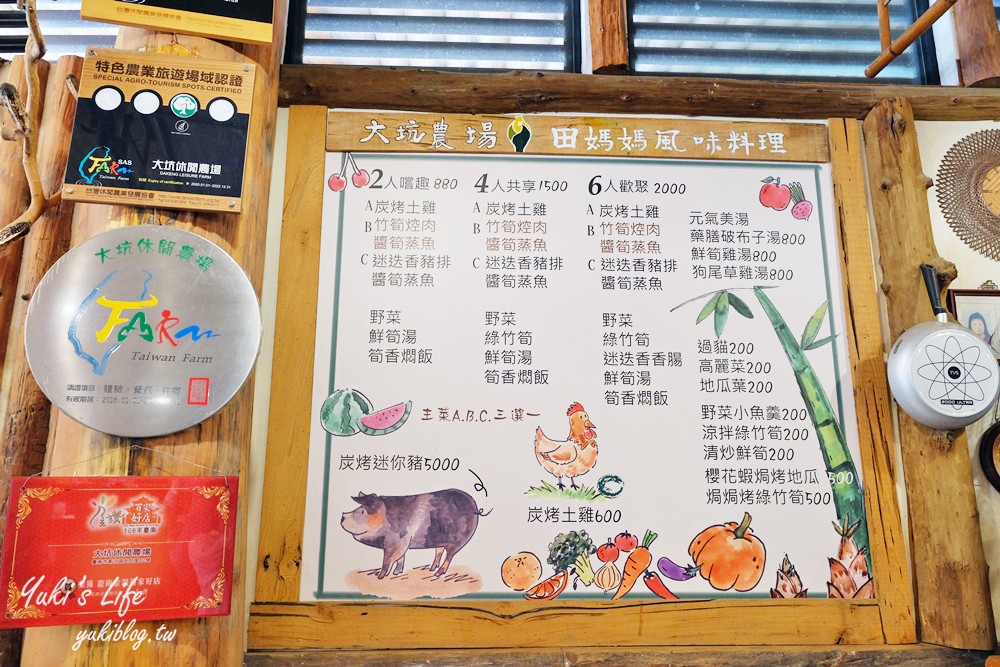 特色農業旅遊場域認證
SPECIAL AGRO-TOURISM SPOTS CERTIFIED
SAS
FARM
Taiwan Farm
大坑休閒農場
DAKENG LEISURE FARM
台灣休閒農業發展協會
大坑休閒農場
FARM
Taiwan Farm
106年臺南
百家好店
大坑休閒農場
Yuki's Life
yukiblog.tw
大坑農場 田媽媽風味料理
2人嚐趣 880
A炭烤土雞
B竹筍焢肉
醬筍蒸魚
C迷迭香豬排
醬筍蒸魚
野菜
鮮筍湯
筍香燜飯
4人共享1500
A炭烤土雞
B竹筍焢肉
醬筍蒸魚
C迷迭香豬排
醬筍蒸魚
野菜
綠竹筍
鮮筍湯
筍香燜飯
6人歡聚 2000
A炭烤土雞
B竹筍焢肉
醬筍蒸魚
C迷迭香豬排
醬筍蒸魚
野菜
綠竹筍
迷迭香香腸
鮮筍湯
筍香燜飯
主菜A.B.C.三選一
炭烤迷你豬5000
炭烤土雞600
元氣美湯
藥膳破布子湯800
鮮筍雞湯800
狗尾草雞湯800
過貓200
高麗菜200
地瓜葉200
野菜小魚羹200
涼拌綠竹筍200
清炒鮮筍200
櫻花蝦焗烤地瓜 500
焗焗烤綠竹筍500
TVS
2000 ULTRA